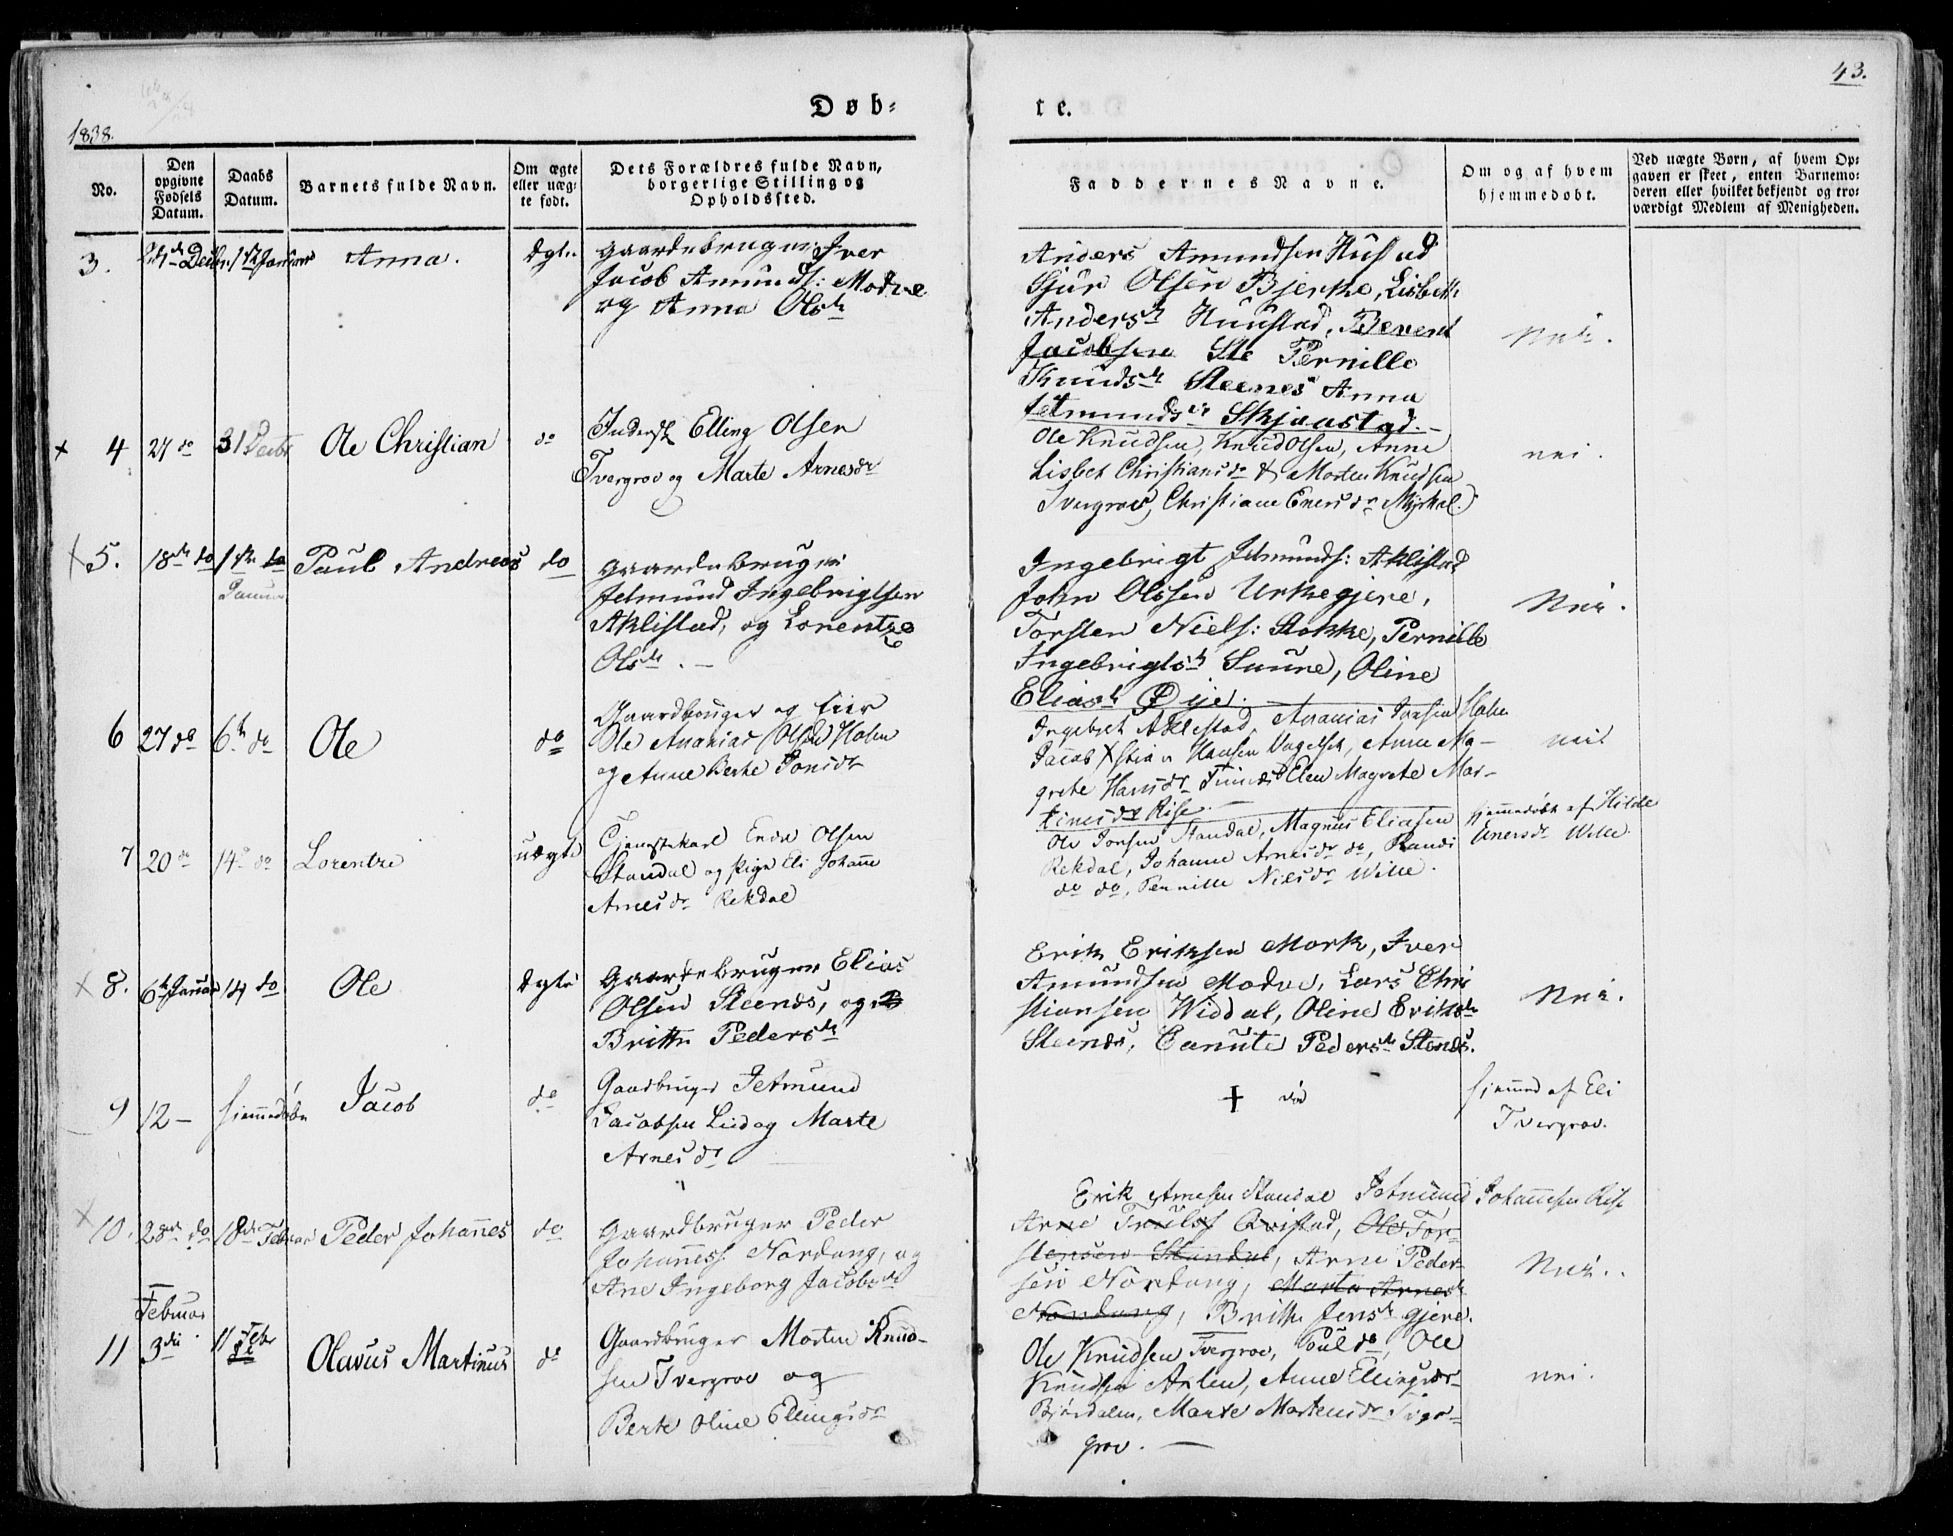 43.
Døb-
te.
1838.
No.
Den opgivne Fødsels Datum.
Daabs Datum.
Barnets fulde Navn.
Om ægte eller uæg-te født.
Dets Forældres fulde Navn, borgerlige Stilling og Opholdssted.
Faddernes Navne.
Om og af hvem hjemmedøbt.
Ved uægte Børn, af hvem Op-gaven er skeet, enten Barnemo-deren eller hvilket bekjendt og tro-værdigt Medlem af Menigheden.
3.
Anna.
Gaardebruger Iver
Jacob Amunds: Modve
og Anna Olsdr
Anders Amundsen Hustad
Sjur Olsen Bjerke, Lisbeth
Andersdr Huustad, Berent
Jacobsen Ste Pernille
Knudsdr Steenes Anna
Nei.
4
27 do
31 Decbr
Ole Christian
do
Inderst Elling Olsen
Tvergrov og Marte Arnesdr
Ole Knudsen, Knud Olsen, Anne
Lisbet Christiansdr & Morten Knudsen
Tvergrov, Christiane Enersdr Myskal.
nei.
5.
18de do
1ste do
Januar
Paul Andreas
do
Gaardebruger
Jetmund Ingebrigtsen
Aklistad, og Lorentze
Olsdr. -
Ingebrigt Jetmunds: Aklistad
John Olssen Urkegjere,
Torsten Niels: Stokke, Pernille
Ingebrigtsdr Suure, Oline
Eliasdr Øije.
Nei.
6
27 do
6te do
Ole
do
Gaardbruger og Eier
Ole Ananias Olsen Holen
og Anne Berte Jonsdr
Ingebret Aklestad, Ananias Jonsen Holen
Jacob Xstian Hansen
Anne Ma-
grete Hansdr
Elen Magrete Mar-
tinusdr Rise.
nei
7
20 do
14 do
Lorentze
uægte
Tjenestekarl Endre Olsen
Standal og Pige Eli Johanne
Arnesdr Rekdal
Ole Jonsen Standal, Magnus Eliasen
Rekdal, Johanne Arnesdr do, Randi
do do, Pernille Nielsdr Wilte.
hjemmedøbt af Hilde
Enersdr Wille.
8.
6te Januar
14 do
Ole
Ægte
Gaardebruger Elias
Olsen Steenes, og
Britte Pedersdr
Erik Eriksen Mork, Iver
Amundsen Modve, Lars Chri
stiansen Widdal, Oline Eriksdr
Steenes, Canute Pedersdr Stenes.
Nei.
9
12 -
hjemmedøbt
Jacob
do
Gaardbruger Jetmund
Jacobsen Lied og Marte
Arnesdr
†
hjemmed af Eli
Tvergrov.
10.
28de do
18de Februar
Peder Johannes
do
Gaardbruger Peder
Johanness. Nordang, og
Ane Ingeborg Jacobsdr
Erik Arnesen Standal Jetmund Johannesen Rise
Arne Truls: Qvistad, Ole Tor-
stensen Standal, Arne Peder-
sen Nordang, Marta Arnesdr
Nordang, Brithe Jensdr gjere.
Nei..
Februar
11
3die
11 Febr
Olavus Martinus
do
Gaardbruger Morten Knud-
sen Tvergrov og
Berte Oline Ellingsdr
Ole Knudsen Tvergrov, Poul do, Ole
Knudsen Aslen, Anne Ellingsdr
Bjørdalen, Marte Martensdr Tver-
grov. -
nei.